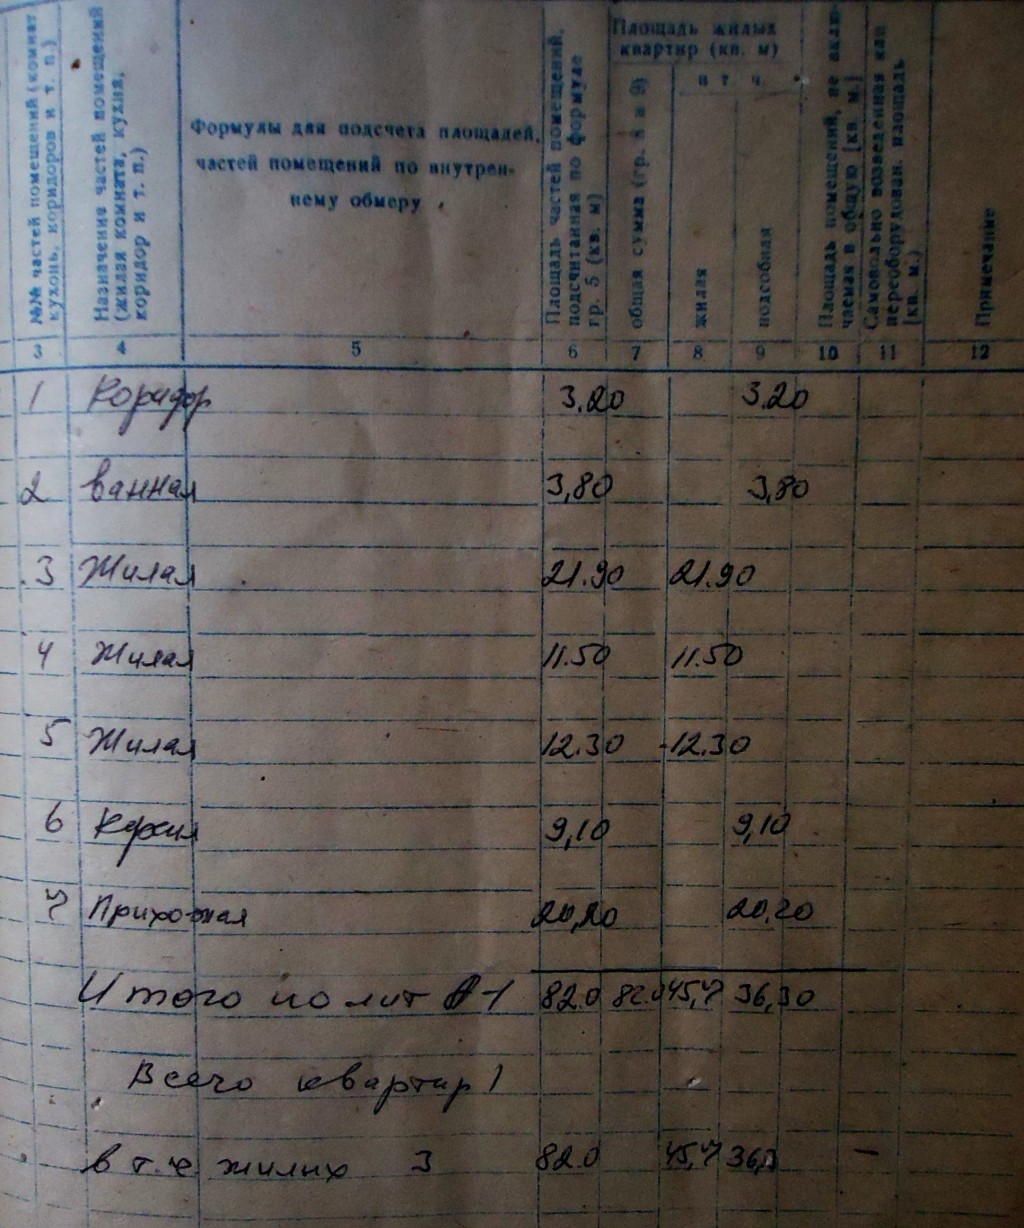 №№ частей помещений (комнат кухонь, коридоров и т. п.)
Назначение частей помещений (жилая комната, кухня, коридор и т. п.)
Формулы для подсчета площадей,
частей помещений по внутрен-
нему обмеру
Площадь частей помещений, подсчитанная по формуле гр. 5 (кв. м)
Площадь жилых
квартир (кв. м)
общая сумма (гр. 8 и 9)
в т. ч.
жилая
подсобная
Площадь помещений, не вклю-
чаемая в общую (кв. м)
Самовольно возведенная или
переоборудован. площадь
(кв. м.)
Примечание
3 4 5 6 7 8 9 10 11 12
1 Коридор 3.20 3.20
2 ванная 3,80 3,80
3 Жилая 21.90 21.90
4 Жилая 11.50 11.50
5 Жилая 12.30 12.30
6 Кухня 9,10 9,10
7 Прихожая 20,20 20,20
Итого по лит А-1 82.0 82.0 45,7 36,30
Всего квартир 1
в т.ч жилих 3 82.0 45,7 36,3 —